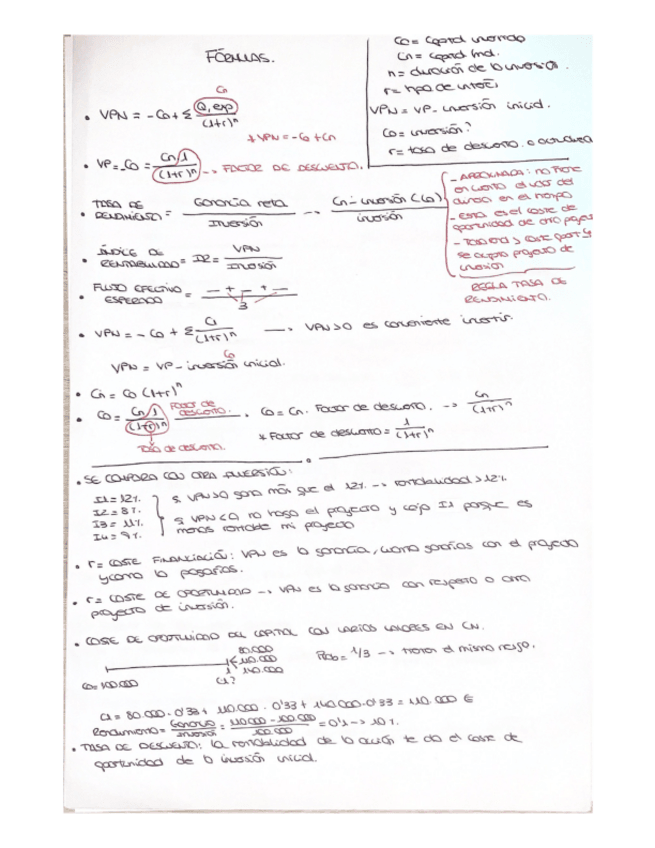 FÓRMULAS.
C0 = capital invertido
Cn = capital final.
n = duración de la inversión.
r = tipo de interés
VPN = VP - inversión inicial.
C0 = inversión?
r = tasa de descuento. o
Cn
• VPN = -C0 + Σ Q, exp / (1+r)^n
* VPN = -C0 + Cn
• VP = C0 = Cn · 1 / (1+r)^n --> FACTOR DE DESCUENTO.
• TASA DE RENDIMIENTO = Ganancia neta / Inversión --> Cn - inversión (C0) / inversión
- APROXIMADA: no tiene
en cuenta el valor del
dinero en el tiempo
- Esta es el coste de
oportunidad de otro proyecto
- Tasa rend > coste oport y
se acepta proyecto de
inversión
REGLA TASA DE
RENDIMIENTO.
• ÍNDICE DE RENTABILIDAD = IR = VPN / Inversión
• FLUJO EFECTIVO ESPERADO = — + — + — / 3
• VPN = - C0 + Σ C1 / (1+r)^n —> VPN>0 es conveniente invertir.
C0
VPN = VP - inversión inicial.
• Cn = C0 (1+r)^n
• C0 = Cn · 1 / (1+r)^n Factor de descuento. C0 = Cn. Factor de descuento. --> Cn / (1+r)^n
Tasa de descuento.
* Factor de descuento = 1 / (1+r)^n
• SE COMPARA CON OTRA INVERSIÓN:
I1 = 12%
I2 = 8%
I3 = 11%
I4 = 9%
Si VPN>0 gana más que el 12% --> rentabilidad > 12%
Si VPN<0 no hago el proyecto y cojo I1 porque es
menos rentable mi proyecto
• r = COSTE FINANCIACIÓN: VPN es la ganancia, cuanto ganarías con el proyecto
y como lo pagarías.
• r = COSTE DE OPORTUNIDAD --> VPN es la ganancia con respecto a otro
proyecto de inversión.
• COSTE DE OPORTUNIDAD DEL CAPITAL CON VARIOS VALORES EN CN.
80.000
110.000
140.000
Prob = 1/3 --> tienen el mismo riesgo.
C0 = 100.000
C1?
C1 = 80.000 · 0'33 + 110.000 · 0'33 + 140.000 · 0'33 = 110.000 €
Rendimiento = Ganancia / inversión = 110.000 - 100.000 / 100.000 = 0'1 --> 10%.
• TASA DE DESCUENTO: la rentabilidad de la acción te da el coste de
oportunidad de la inversión inicial.